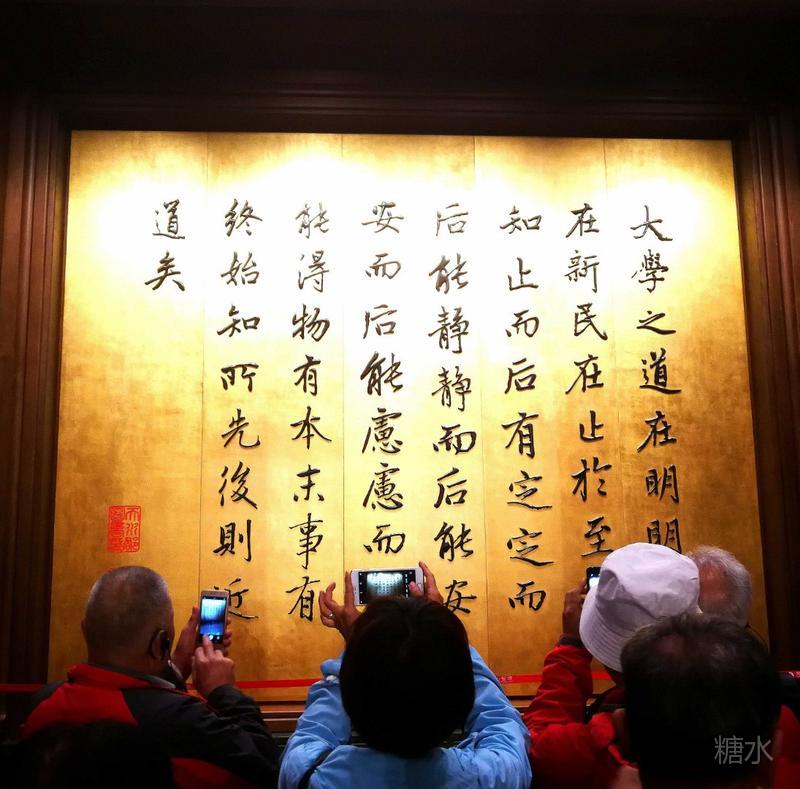 大學之道在明明
在新民在止於至
知止而后有定定而
后能靜靜而后能安
安而后能慮慮而
能得物有本末事有
終始知所先後則近
道矣
糖水